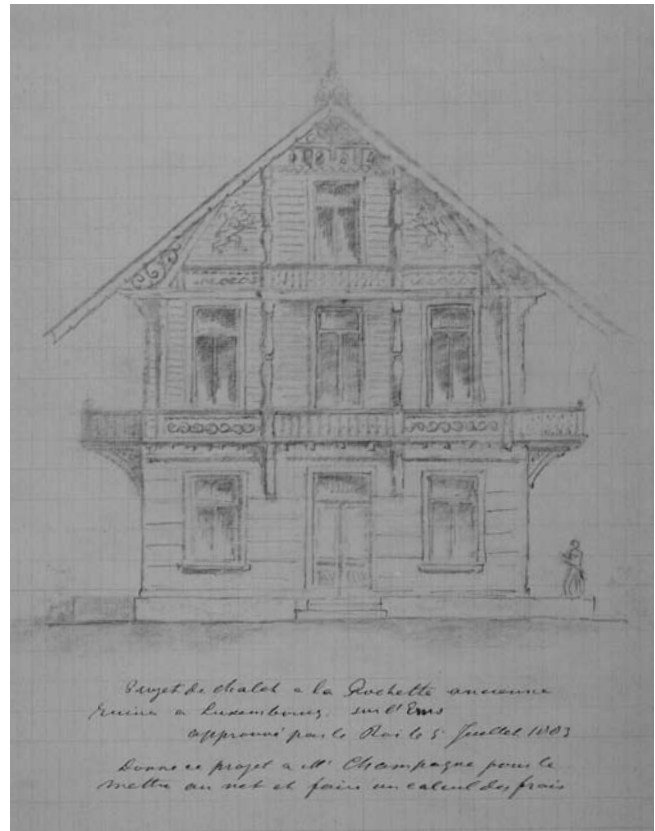 Projet de chalet a la Rochette ancienne
ruine a Luxembourg. sur l'Erns
approuvé par le Roi le 5 Juillet 1883
Donné ce projet a Mr Champagne pour le
mettre au net et faire un calcul des frais